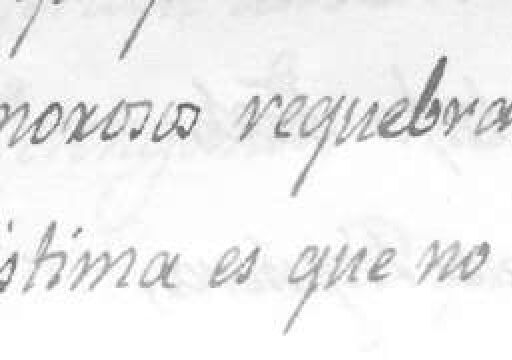 moxosos requebra
istima es que no